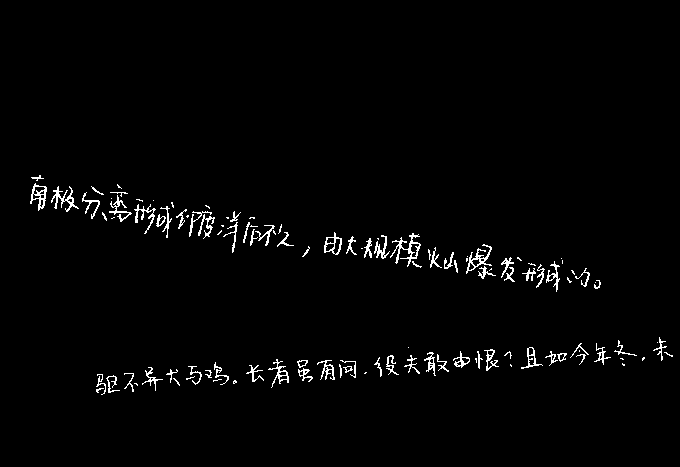 南极分离形成印度洋后不久，由大规模火山爆发形成的。
驱不异犬与鸡。长者虽有问，役夫敢由恨？且如今年冬，未